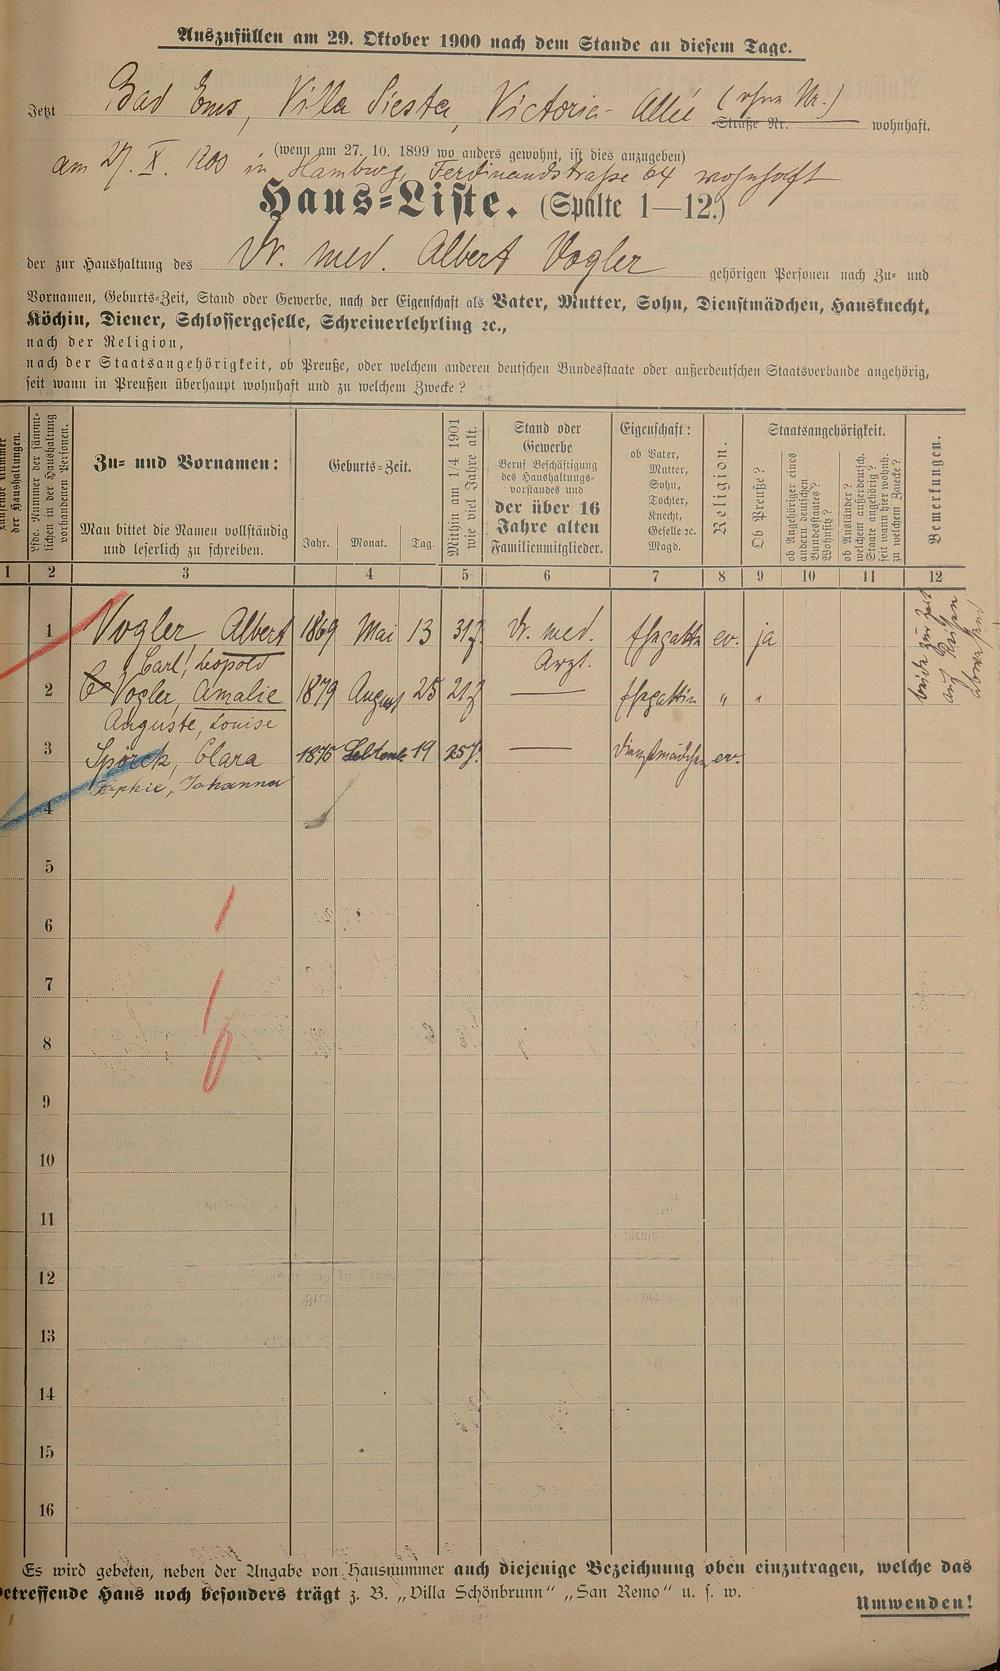 Auszufüllen am 29. Oktober 1900 nach dem Stande an diesem Tage.
Jetzt Bad Ems, Villa Siesta, Victoria-Allee (ohne Nr.) Straße Nr. wohnhaft.
(wenn am 27. 10. 1899 wo anders gewohnt, ist dies anzugeben)
am 27. X. in Hamburg, Ferdinandstraße 64 wohnhaft
Haus-Liste. (Spalte 1—12.)
der zur Haushaltung des Dr. med. Albert Vogler gehörigen Personen nach Zu- und
Vornamen, Geburts-Zeit, Stand oder Gewerbe, nach der Eigenschaft als Vater, Mutter, Sohn, Dienstmädchen, Hausknecht,
Köchin, Diener, Schlossergeselle, Schreinerlehrling ꝛc.,
nach der Religion,
nach der Staatsangehörigkeit, ob Preuße, oder welchem anderen deutschen Bundesstaate oder außerdeutschen Staatsverbande angehörig,
seit wann in Preußen überhaupt wohnhaft und zu welchem Zwecke?
laufende Nummer der Haushaltungen.
Lfde. Nummer der sämmtlichen in der Haushaltung vorhandenen Personen.
Zu- und Vornamen:
Man bittet die Namen vollständig
und leserlich zu schreiben.
Geburts-Zeit.
Jahr. Monat. Tag.
Mithin am 1/4 1901
wie viel Jahre alt.
Stand oder
Gewerbe
Beruf Beschäftigung
des Haushaltungs-
vorstandes und
der über 16
Jahre alten
Familienmitglieder.
Eigenschaft:
ob Vater,
Mutter,
Sohn,
Tochter,
Knecht,
Geselle ꝛc.
Magd.
Religion.
Staatsangehörigkeit.
Ob Preuße?
ob Angehöriger eines
andern deutschen
Bundesstaates?
Wohnsitz?
ob Ausländer?
welchem außerdeutsch.
Staate angehörig?
seit wann hier wohnh.
zu welchem Zwecke?
Bemerkungen.
1 2 3 4 5 6 7 8 9 10 11 12
1 Vogler Albert 1869 Mai 13 31J. Dr. med. Ehegatte ev. ja
Carl, Leopold Arzt.
2 Vogler, Amalie 1879 August 25 21J — Ehegattin " "
Auguste, Louise
3 Spörck, Clara 1875 19 25J. — Dienstmädchen ev.
Sophie, Johanna
beide zur Zeit
auf Reisen
4
5
6
7
8
9
10
11
12
13
14
15
16
Es wird gebeten, neben der Angabe von Hausnummer auch diejenige Bezeichnung oben einzutragen, welche das
betreffende Haus noch besonders trägt z. B. „Villa Schönbrunn“ „San Remo“ u. s. w.
Umwenden!